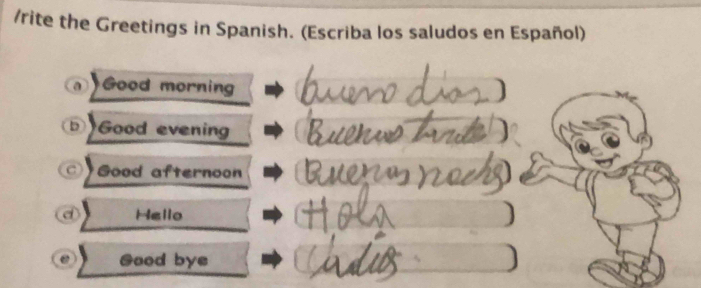 /rite the Greetings in Spanish. (Escriba los saludos en Español)
a Good morning bueno dias
b Good evening Buenas tarde
c Good afternoon Buenas noche
d Hello Hola
e Good bye adios